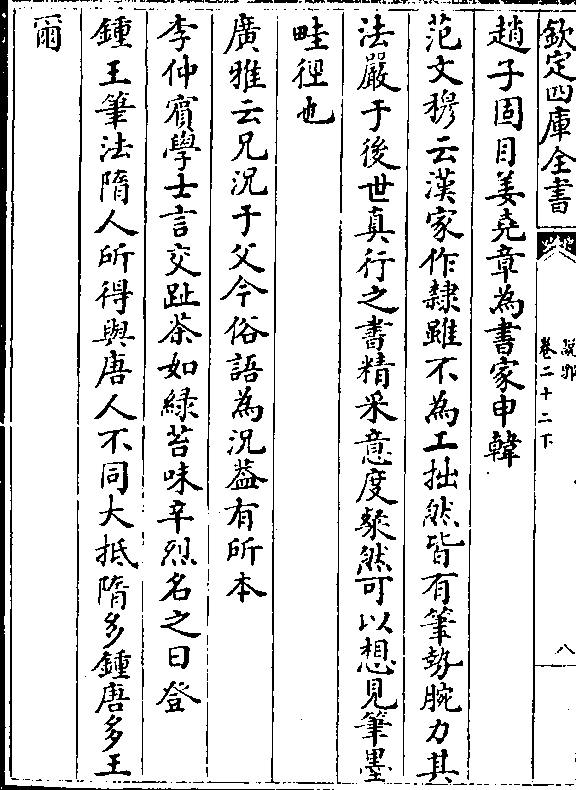 欽定四庫全書
說郛
卷二十二下
八
趙子固目姜堯章為書家申韓
范文穆云漢家作隸雖不為工拙然皆有筆勢腕力其
法嚴于後世真行之書精采意度粲然可以想見筆墨
畦徑也
廣雅云兄況于父今俗語為況葢有所本
李仲賓學士言交趾茶如綠苔味辛烈名之曰登
鍾王筆法隋人所得與唐人不同大抵隋多鍾唐多王
爾